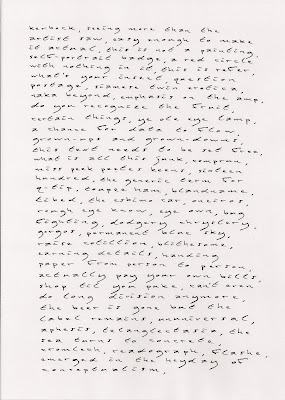 kerbock, seeing more than the
artist saw, easy enough to make
it actual, this is not a painting,
self-portrait badge, a red circle
with nothing in it, this is refer,
what's your insect, question
postage, siamese twin erotica,
naka beyond, emphasis on the amp,
do you recognize the fruit,
certain things, ye ole eye lamp,
a chance for data to flow,
grown-ups and grown-downs,
this text needs to be set free,
what is all this junk, compran,
miss peek postes keens, sixteen
hundred, the generic term for
q-tip, toupee ham, blandname,
tibed, the eskimo car, oneiros,
rough eye know, eye own, bug
fighting, dodgery chryslery,
gorgos, permanent blue sky,
raise cotillion, blithesome,
earning details, handing
paper from person to person,
actually pay your own bills,
shop til you puke, can't even
do long division anymore,
the beer is gone but the
label remains, unniversal,
aphesis, telangiectasia, the
sea turns to concrete,
cromlech, readograph, flashe,
emerged in the heyday of
conceptualism,